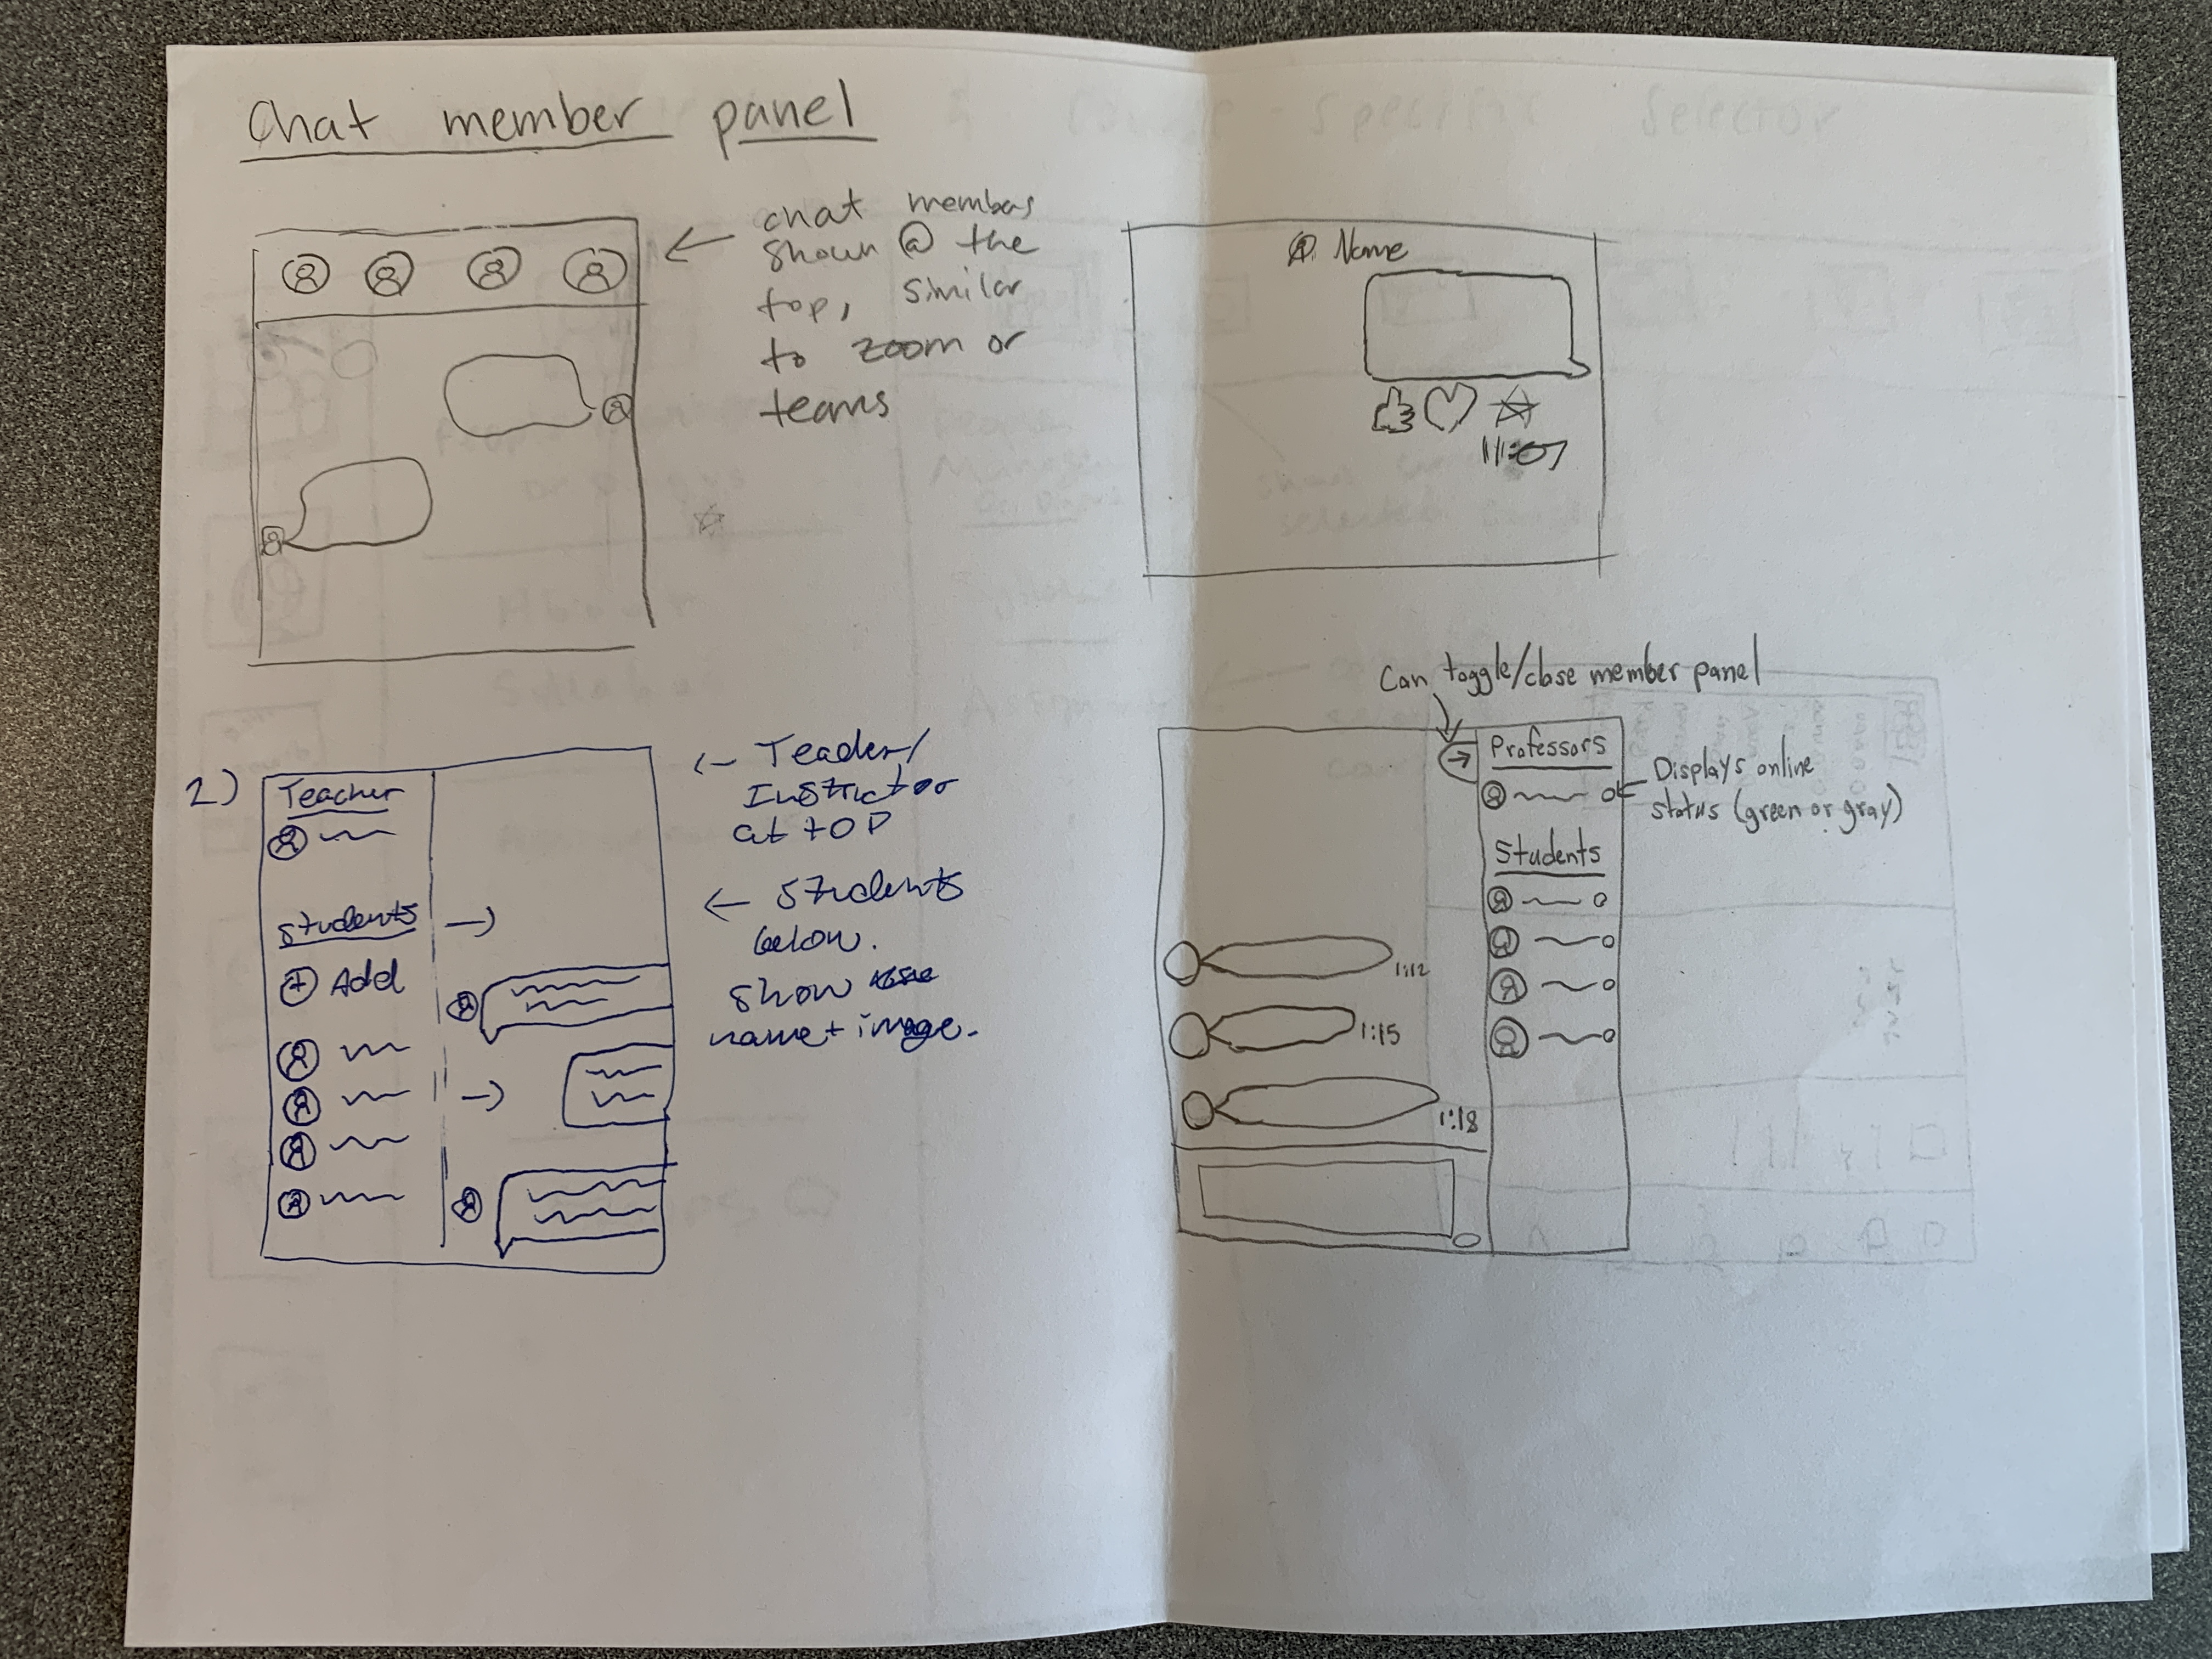 Chat member panel
chat members
shown @ the
top, similar
to zoom or
teams
Name
11:07
2)
Teacher
Students
+ Add
← Teacher/
Instructor
at top
← Students
below.
show
name + image.
Can toggle/close member panel
Professors
Displays online
status (green or gray)
Students
1:12
1:15
1:18